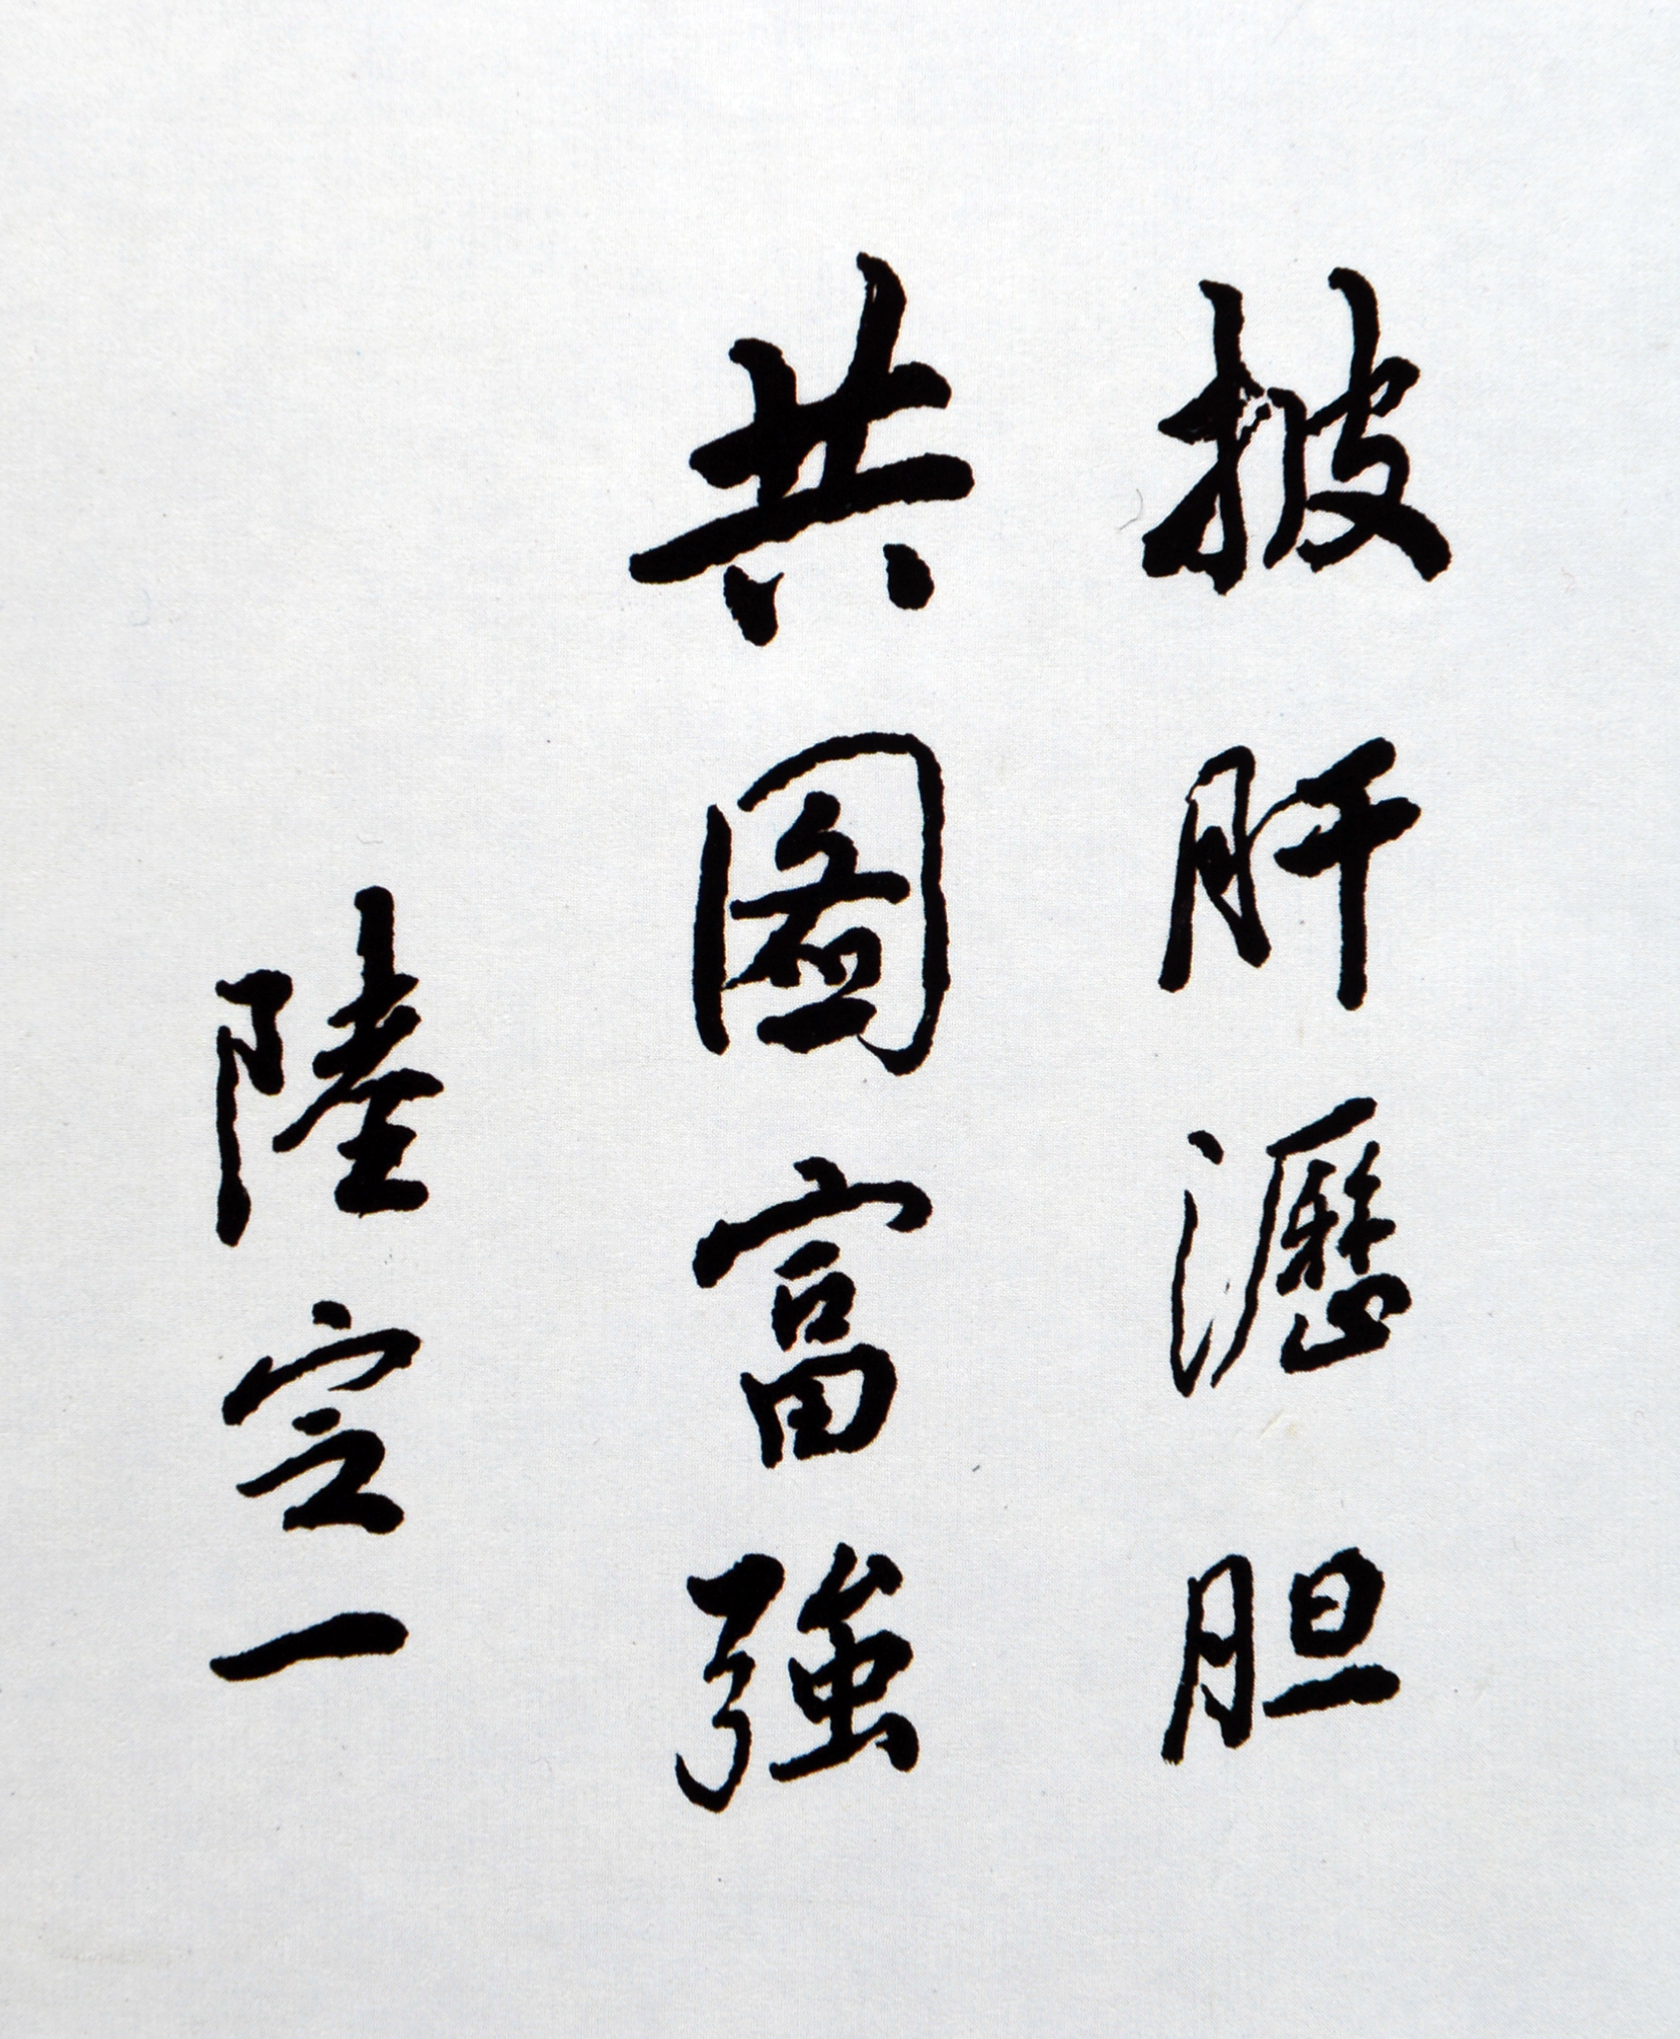 披肝瀝胆
共圖富強
陸定一